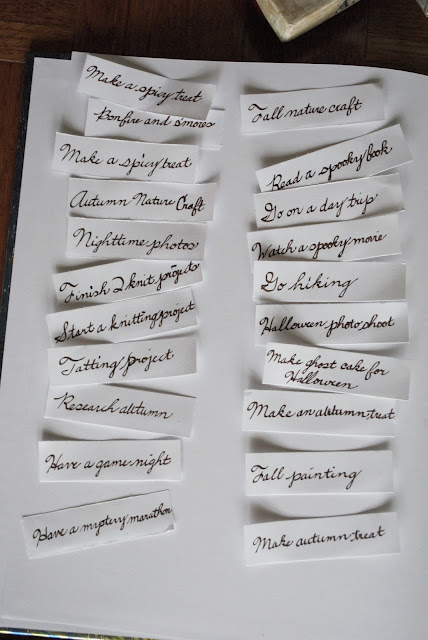 Make a spicy treat
Bonfire and s'mores
Make a spicy treat
Autumn Nature Craft
Nighttime photos
Finish 2 knit projects
Start a knitting project
Tatting project
Research autumn
Have a game night
Have a mystery marathon
Fall nature craft
Read a spooky book
Go on a day trip
Watch a spooky movie
Go hiking
Halloween photo shoot
Make ghost cake for
Halloween
Make an autumn treat
Fall painting
Make autumn treat